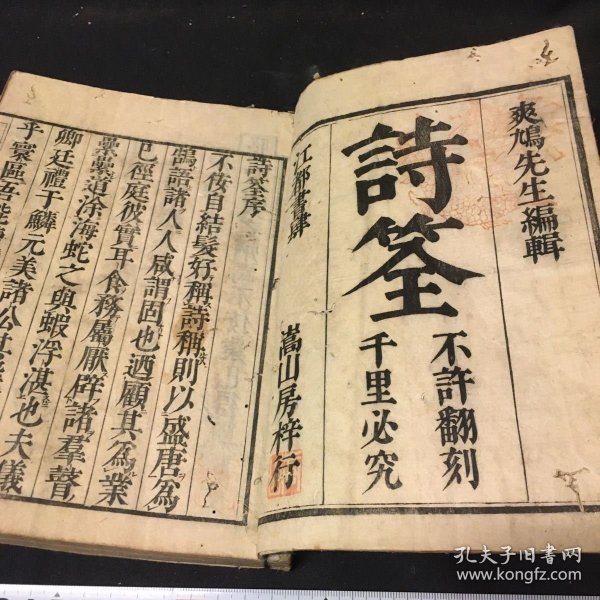 爽鳩先生編輯
詩筌
不許翻刻
千里必究
江都書肆
嵩山房梓行
詩筌序
不佞自結髮好稱詩稱則以盛唐為
鵠語諸人人咸謂固也迺顧其為業
已徑庭彼實耳食務屬厭辟諸羣瞽
道涂海蛇之與蝦浮湛也夫儀
卿廷禮于鱗元美諸公
乎寰區
孔夫子旧书网
www.kongfz.com